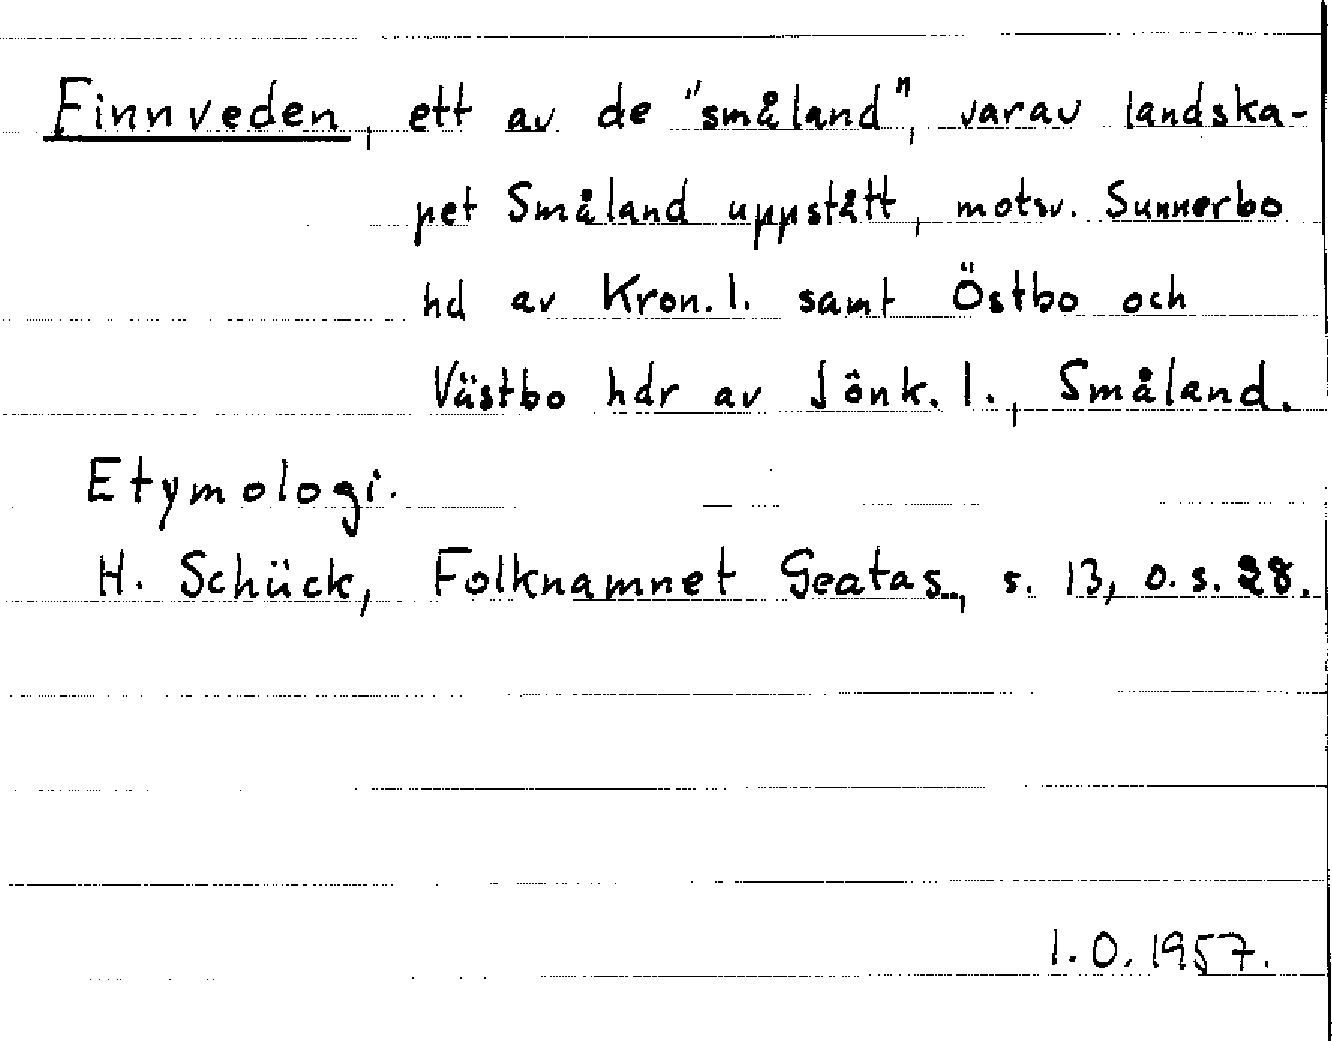 Finnveden, ett av de "småland", varav landska-
pet Småland uppstått, motsv. Sunnerbo
hd av Kron. l. samt Östbo och
Västbo hdr av Jönk. l., Småland.
Etymologi.
H. Schück, Folknamnet Geatas, s. 13, o. s. 28.
I. O. 1957.